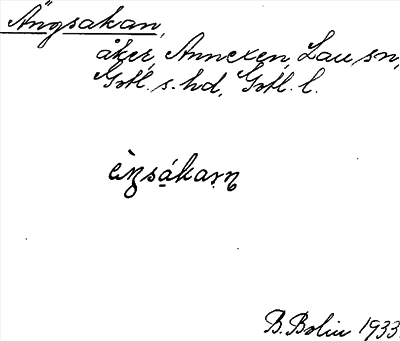 Ängsakan,
åker, Annexen, Lau sn,
Gotl. s. hd, Gotl. l.
èŋsákaṛn
B. Bolin 1933.